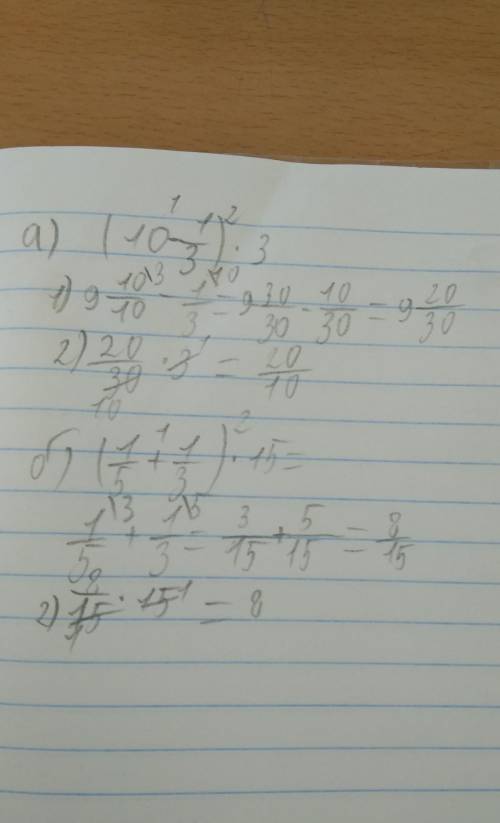 а) (10 - 1/3) · 3
1) 9 10/10 - 1/3 = 9 30/30 - 10/30 = 9 20/30
2) 20/30 · 3 = 20/10
б) (1/5 + 1/3) · 15 =
1/5 + 1/3 = 3/15 + 5/15 = 8/15
2) 8/15 · 15 = 8